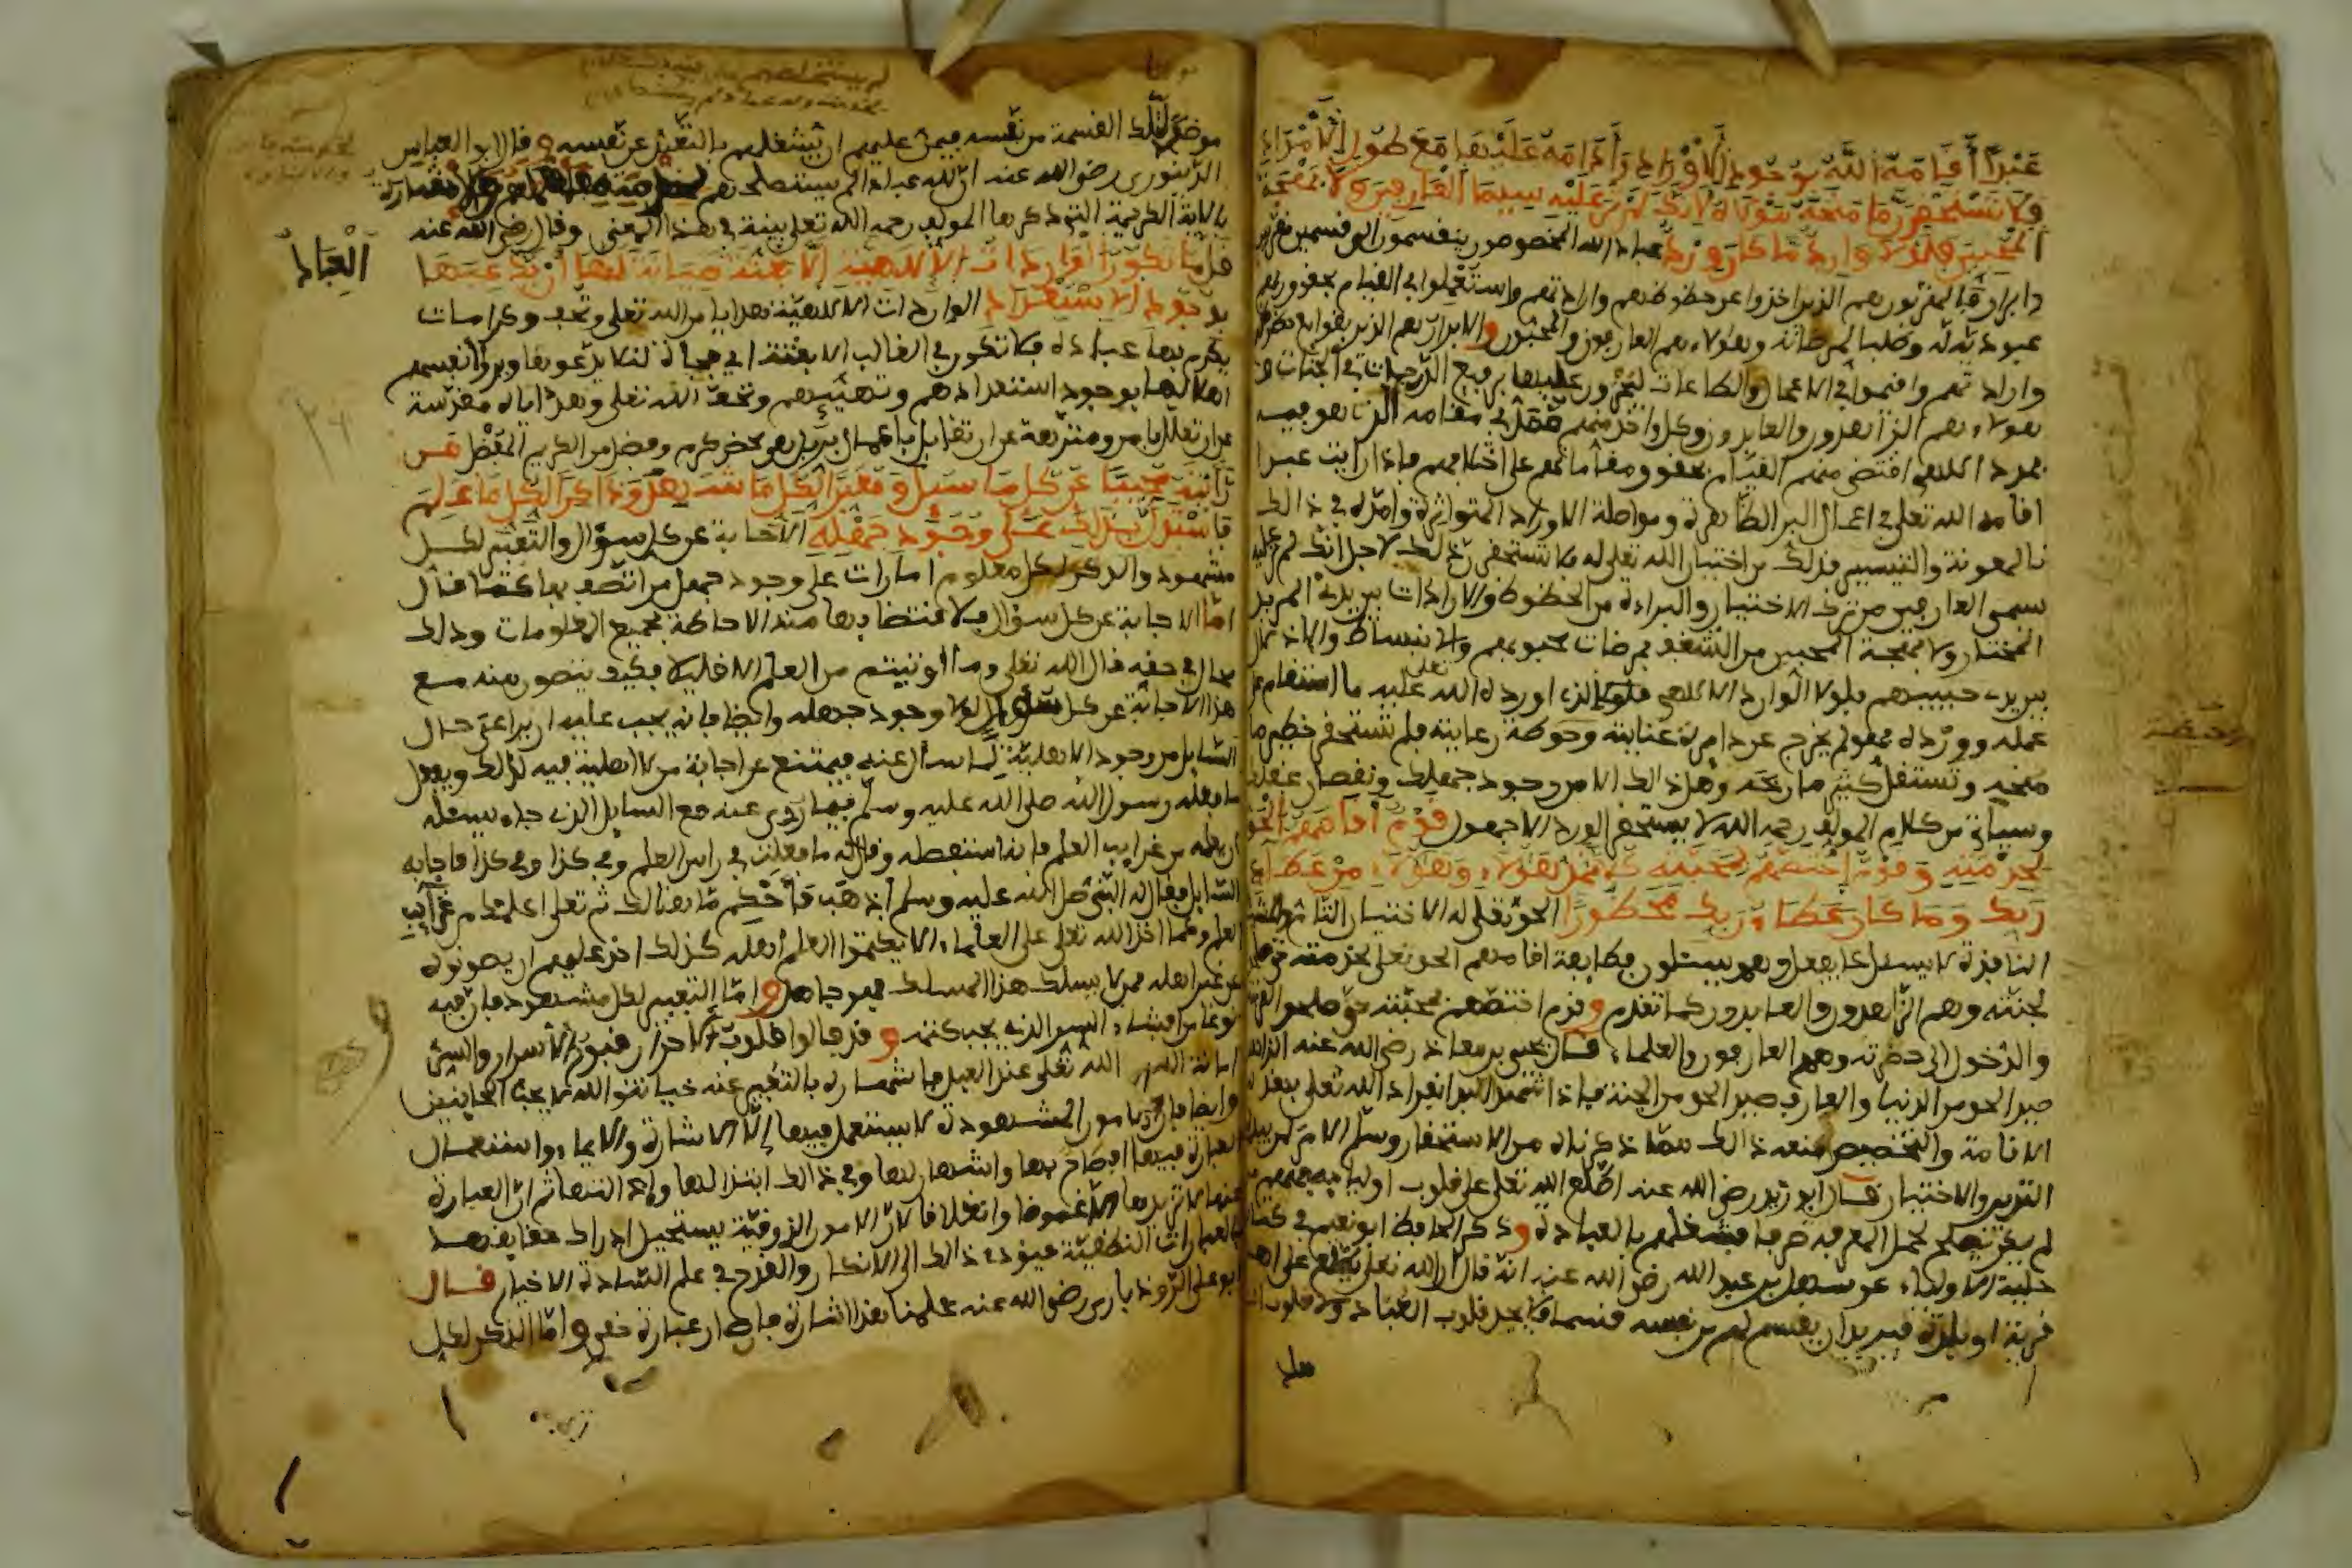 عَبْدًا أَقَامَهُ اللَّهُ بِوُجُودِ الْأَوْرَادِ وَأَدَامَهُ عَلَيْهَا مَعَ طُولِ الْأَمْدَادِ
فَلَا تَسْتَحْقِرَنَّ مَا مَنَحَهُ مَوْلَاهُ لِأَنَّكَ لَمْ تَرَ عَلَيْهِ سِيمَا الْعَارِفِينَ وَلَا بَهْجَةَ
الْمُحِبِّينَ فَلَوْلَا وَارِدٌ مَا كَانَ وِرْدٌ عباد الله المخصوصون ينقسمون إلى قسمين مقربين
وابرار فالمقربون هم الذين اخذوا عن حظوظهم وارادتهم واستعملوا في القيام بحقوق ربهم
عبودية له وطلبا لمرضاته وهؤلاء هم العارفون والمحبون والابرار هم الذين بقوا مع حظوظهم
وارادتهم واقيموا في الاعمال والطاعات ليجزون عليها برفيع الدرجات في الجنات و
هؤلاء هم الزاهدون والعابدون وكل واحد منهم في مقامه الذي هو فيه
اقامه الله تعالى في اعمال البر الظاهرة ومواصلة الاوراد المتواترة وامده في ذالك
بالمعونة والتيسير فذلك من اختيار الله تعالى له فلا تستحقرن ذالك لاجل انك لم تر عليه
سمى العارفين من ترك الاختيار والبراءة من الحظوظ والارادات بين يدي المريد
المختار ولا بهجة المحبين من الشغف بمرضات محبوبهم والانبساط والادلال
بين يدي حبيبهم فلولا الوارد الالاهي الذي اورده الله تعالى عليه ما استقام
عمله وورده فهو لم يخرج عن دايرة عنايته وحوطة رعايته فلم تستحقر خطير ما
منحه وتستقل كثير ما ربحه وهل ذالك الا من وجود جهلك ونقصان عقلك
وسياتي من كلام المولف رحمه الله لا يستحقر الورد الا جهول قَوْمٌ أَقَامَهُمُ الْحَقُّ
لِخِدْمَتِهِ وَقَوْمٌ اخْتَصَّهُمْ لِمَحَبَّتِهِ كُلًّا نُمِدُّ هَؤُلَاءِ وَهَؤُلَاءِ مِنْ عَطَاءِ
رَبِّكَ وَمَا كَانَ عَطَاءُ رَبِّكَ مَحْظُورًا الحق تعالى له الاختيار التام والمشيئة
النافذة لا يسئل عما يفعل وهم يسئلون فطايفة اقامهم الحق تعالى لخدمته
لجنته وهم الزاهدون والعابدون كما تقدم وقوم اختصهم لمحبته حتى صلحوا لقربه
والدخول الى حضرته وهم العارفون والعلماء قال يحيى بن معاذ رضي الله عنه الزاهد
صيد الحق من الدنيا والعارف صيد الحق من الجنة فاذا شهد العبد انفراد الله تعالى بهذه
الاقامة والتخصيص منعه ذالك مما ذكرناه من الاستحقار وسلم الامر لمن بيده
التدبير والاختيار قال ابو زيد رضي الله عنه اطلع الله تعالى على قلوب اوليائه فمنهم من
لم يكن يصلح لحمل المعرفة صرفا فشغلهم بالعبادة وذكر الحافظ ابو نعيم في كتاب
حلية الاولياء عن سهل بن عبد الله رضي الله عنه انه قال ان الله تعالى يطلع على اهل
قرية او بلدة فيريد ان يقسم لهم من نفسه قسما فلا يجد في قلوب العباد ولا قلوب
موضعا لتلك القسمة من نفسه فيمن عليهم ان يشغلهم بالتعبد عن نفسه وقال ابو العباس
الدينوري رضي الله عنه ان لله عبادا لم يستصلحهم
بالاية الكريمة التي ذكرها المولف رحمه الله تعالى بينة في هذا المعنى وقال رضي الله عنه
قَلَّ مَا تَكُونُ الْوَارِدَاتُ الْإِلَاهِيَّةُ إِلَّا بَغْتَةً صِيَانَةً لَهَا أَنْ يَدَّعِيَهَا
الْعِبَادُ
بِوُجُودِ الِاسْتِعْدَادِ الواردات الالاهية هدايا من الله تعالى وتحف وكرامات
يكرم بها عباده فلا تكون في الغالب الا بغتة اي فجأة لئلا يدعوها ويروا انفسهم
اهلا لها بوجود استعدادهم وتهيئهم وتحف الله تعالى وهداياه مقدسة
عن ان تعلل بامر ومنزهة عن ان تقابل باعمال بر بل هي محض كرم وفضل من الكريم المفضل مَن
رَأَيْتَهُ مُجِيبًا عَنْ كُلِّ مَا سُئِلَ وَمُعَبِّرًا لِكُلِّ مَا شَهِدَ وَذَاكِرًا لِكُلِّ مَا عَلِمَ
فَاسْتَدِلَّ بِذَلِكَ عَلَى وُجُودِ جَهْلِهِ الاجابة عن كل سؤال والتعبير لكل
مشهود والذكر لكل معلوم امارات على وجود جهل من اتصف بها
اما الاجابة عن كل سؤال فلاقتضائها منه الاحاطة بجميع المعلومات وذلك
محال في حقه قال الله تعالى وما اوتيتم من العلم الا قليلا فكيف يتصور منه مع
هذا الاجابة عن كل سؤال لولا وجود جهله وايضا فانه يجب عليه ان يراعى حال
السايل من وجود الاهلية لما سأل عنه فيمتنع من اجابة من لا اهلية فيه لذالك ويفعل
ما فعله رسول الله صلى الله عليه وسلم فيما روي عنه مع السايل الذي جاء يسئله
ان يعلمه من غرايب العلم فانه استفصله وقال له ما فعلت في راس العلم وفي كذا وفي كذا فاجابه
السايل فقال له النبي صلى الله عليه وسلم اذهب فاحكم ما هنالك ثم تعالى اعلمك من غرايب
العلم وكما اخذ الله تعالى على العلماء الا يكتموا العلم اهله كذلك اخذ عليهم ان يصونوه
عن غير اهله فمن لا يسلك هذا المسلك فهو جاهل واما التعبير لكل مشهود فان فيه
نوعا من افشاء السر الذي يجب كتمه وقد قالوا قلوب الاحرار قبور الاسرار والسر
امانة الله تعالى عند العبد فافشاءه بالتعبير عنه خيانة والله لا يحب الخاينين
وايضا فان الامور المشهودة لا يستعمل فيها الا الاشارة والايماء واستعمال
العبارة فيها افصاح بها واشهار لها وفي ذالك ابتذال لها واذاعتها ثم ان العبارة
عنها لا تزيدها الا غموضا وانغلاقا لان الامور الذوقية يستحيل ادراك حقايقها
بالعبارات النطقية فيؤدي ذالك الى الانكار والقدح في علم السادة الاخيار قال
ابو علي الروذباري رضي الله عنه علمنا هذا اشارة فاذا صار عبارة خفي واما الذكر لكل